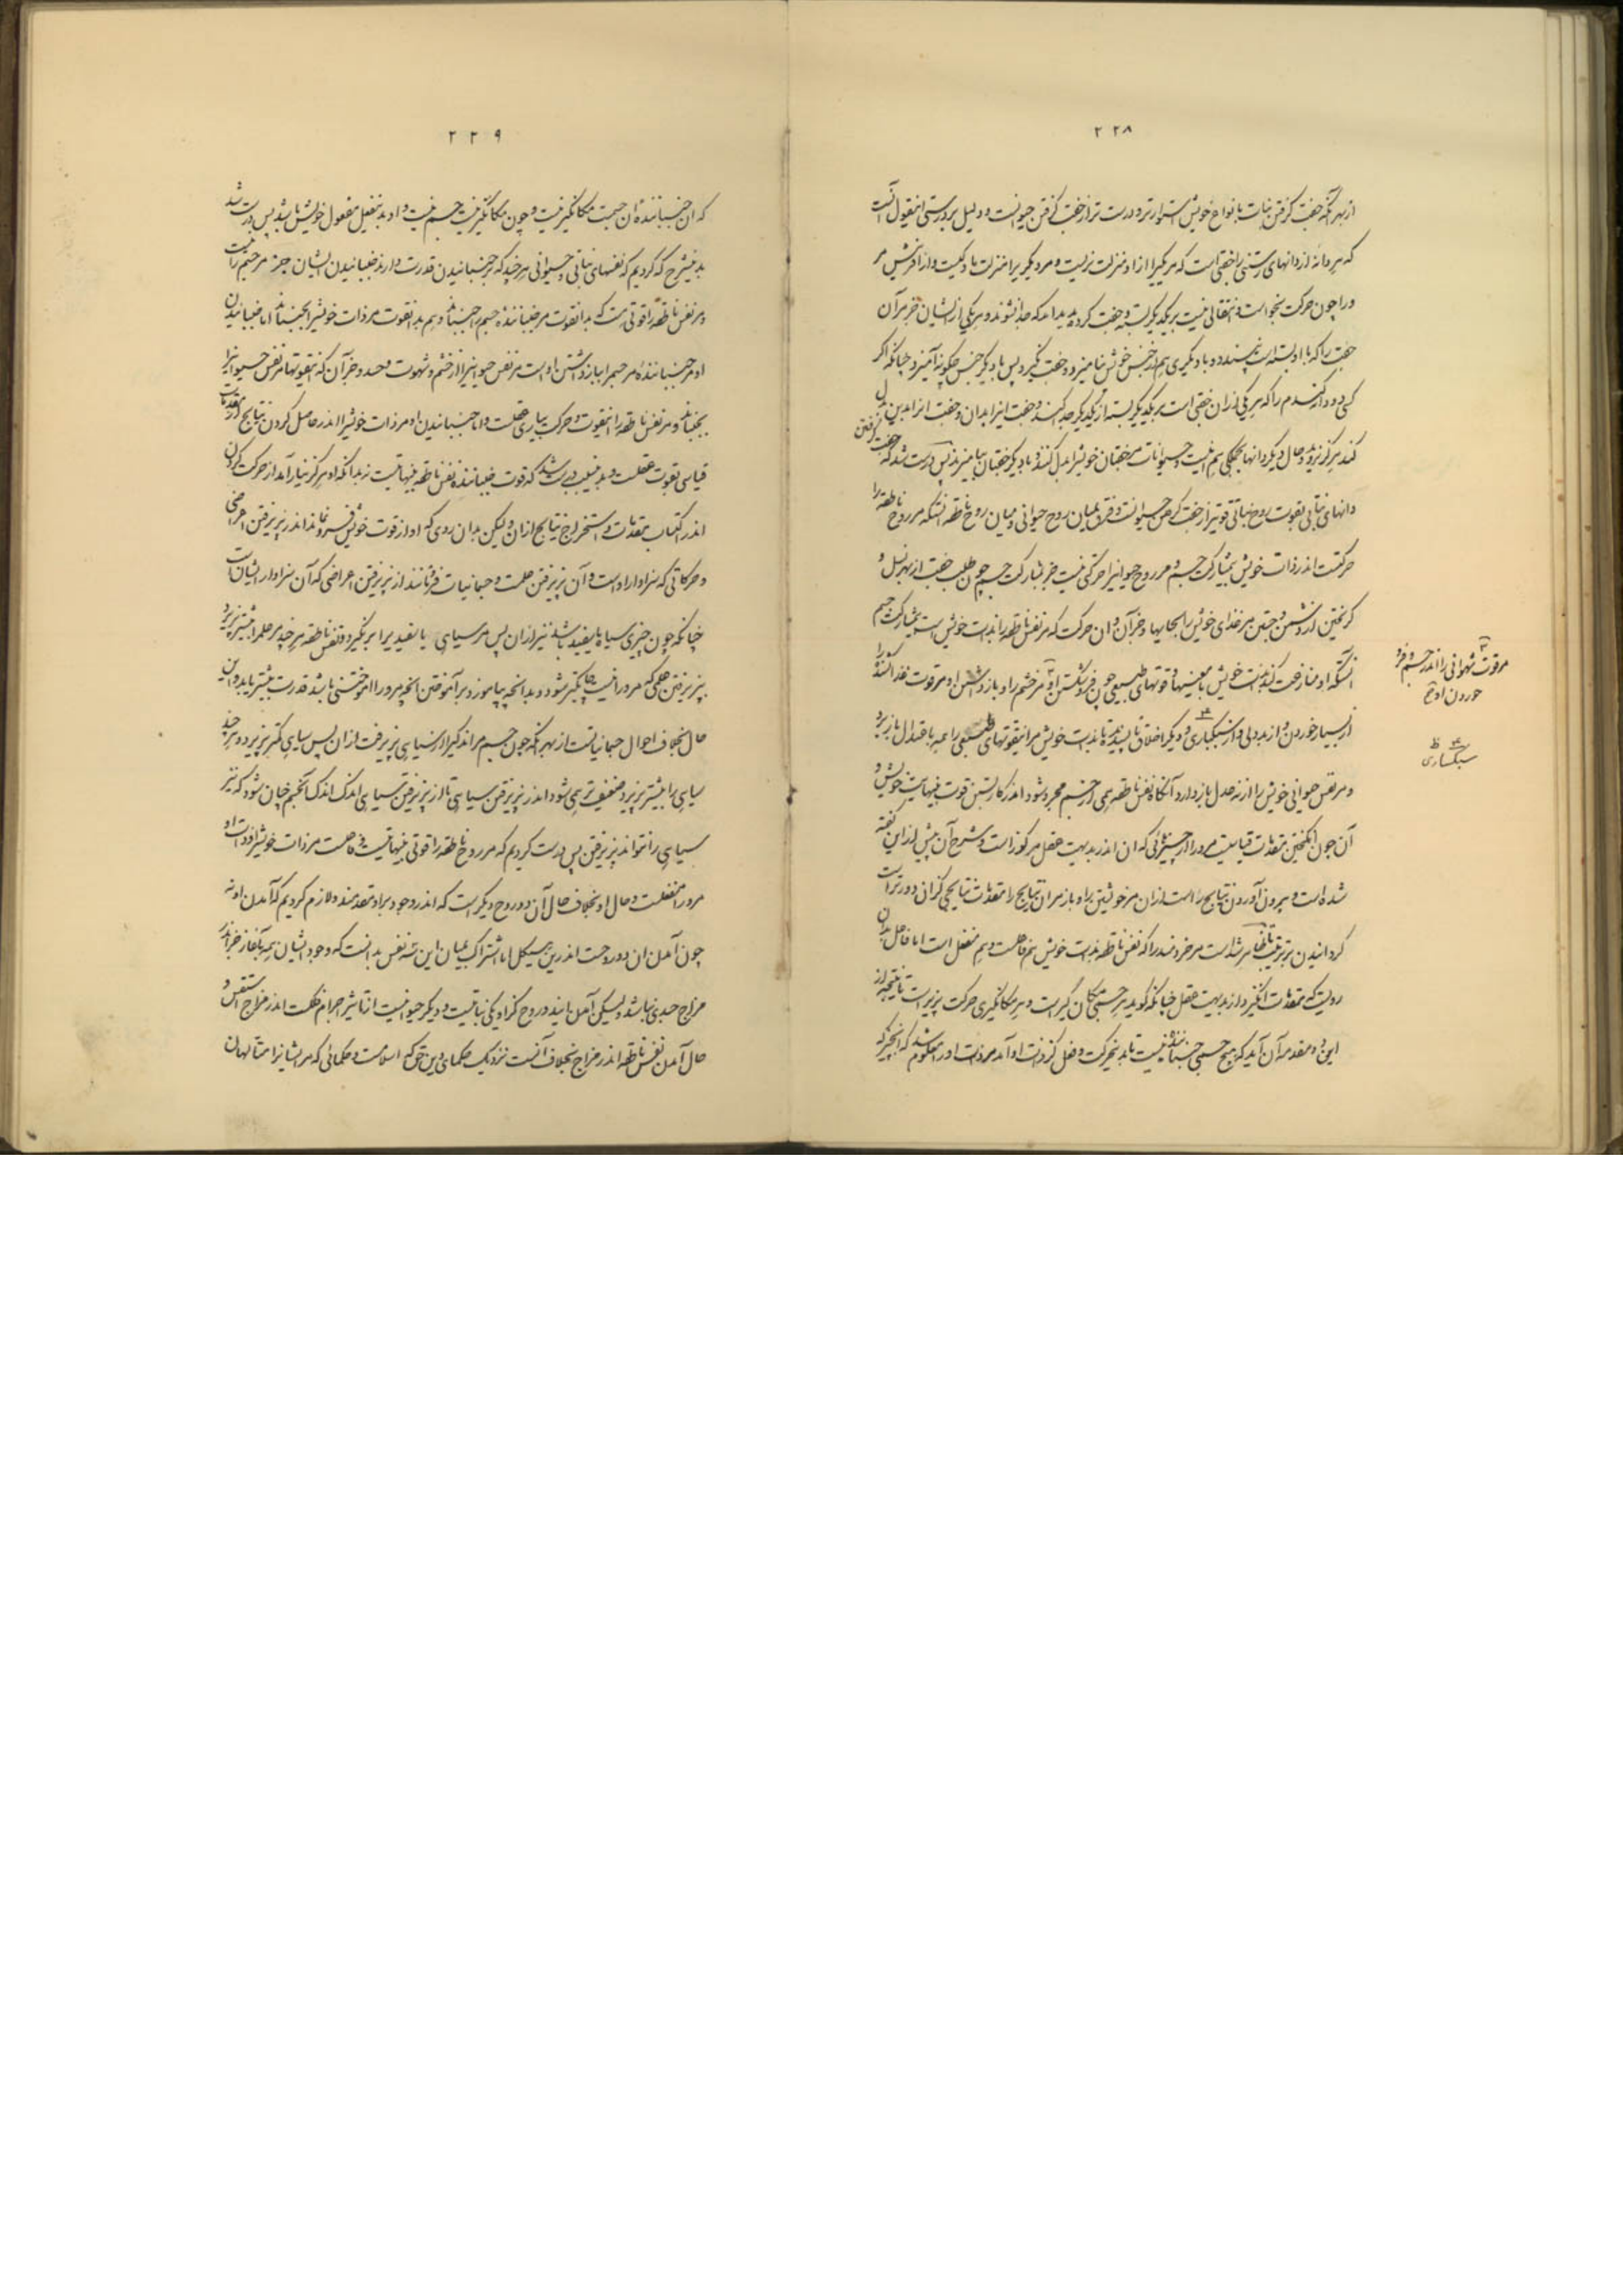 ۲۲۸
از بهر آنکه جفت گرفتن نبات با نواع خویش استوارتر و درست تر از جفت گرفتن حیوانست و دلیل بر درستی اینقول آنست
که هر دانه از دانهای رستنی را جفتی است که مر یکی را از او منزلت نریست و مر دیگریرا منزلت مادگیست و از آفرینش مر
ورا چون حرکت نخواست و انتقالی نیست بر یکدیگر بسته و جفت کرده پدید امد که جدا نشوند و هر یکی از ایشان جز مر آن
جفت را که با او بسته است نپسندد و با دیگری هم از جنس خویش نیامیزد و جفت نگیرد پس با دیگر جنس چگونه آمیزد و چنانکه اگر
کسی دو دانه گندم را که هر یکی از ان جفتی است بر یکدیگر بسته از یکدیگر جدا کند و جفت اینرا بدان و جفت انرا بدین بدل
کند هرگز نروید و حال دیگر دانها بجملگی هم اینست و حیوانات مر جفتان خویش را بدل کنند و با دیگر جفتان بیامیزند پس درست شد که جفت گرفتن
دانهای نباتی بقوت روح نباتی قویتر از جفت گرفتن حیوانست و فرق میان روح حیوانی و میان روح ناطقه انستکه مر روح ناطقه را
حرکتست اندر ذات خویش بی مشارکت جسم و مر روح حیوانیرا حرکتی نیست جز بمشارکت جسم چون طلب جفت از بهر نسل و
گریختن از دشمن و جستن مر غذای خویش را بجایها و جز آن و ان حرکت که مر نفس ناطقه را بذات خویش است بی مشارکت جسم
انستکه او منازعت کند بذات خویش با تعینها و قوتهای طبیعی چون فرو شکستن او مر خشم را و باز داشتن او مر قوت غذا کشنده را
از بسیار خوردن و از بد دلی و از سبکباری و دیگر اخلاق ناپسندیده تا بذات خویش مر اینقوتهای طبیعی را همه باعتدال باز برد
و مر نفس حیوانی خویش را از نه عدل باز دارد آنگاه نفس ناطقه همی از جسم مجرد شود اندر کار بستن قوت بینهایت خویش و
آن چون انگیختن مقدمات قیاسیست مر ورا از چیزهائی که ان اندر بدیهت عقل مرکوز است و شرح آن پیش از این گفته
شده است و بیرون آوردن نتایج راست از ان مر خویشتن را و باز مر ان نتایج را مقدمات نتایجی گرانی دورتر است
گردانیدن بر ترتیب تا ظاهر شد است مر خردمند را که نفس ناطقه بذات خویش هم فاعلست و هم منفعل است اما فاعل بدان
رویست که مقدمات انگیزد از بدیهت عقل چنانکه گوید هر جسمی مکان گیر است و هر مکانگیری حرکت پذیر است تا نتیجه از
این دو مقدمه آن آید که هیچ جسمی جنباننده نیست تا بدین حرکت و فعل کز ذات او آمد مر ذات او را معلوم شد که انچیز که
مر قوت شهوانی را اندر جسم و فرو
خوردن او خ
سبکساری
ظ
۲۲۹
که ان جنباننده ان جسمست مکانگیر نیست و چون مکانگیر نیست جسم نیست و او بدینفعل مفعول خویش باشد پس درست شد
بدینشرح که کردیم که نفسهای نباتی و حیوانی هر چند که بر جنبانیدن قدرت دارند جنبانیدن ایشان جز مر جسم را نیست
و مر نفس ناطقه را قوتی است که بدانقوت مر جنباننده جسم را جنباند و هم بدانقوت مر ذات خویش را بجنباند اما جنبانیدن
او مر جنباننده مر جسم را باز داشتن او است مر نفس حیوانیرا از خشم و شهوت و حسد و جز آن که اینقوتها مر نفس حیوانیرا
بجنباند و مر نفس ناطقه را اینقوت و حرکت بیاری عقلست و اما جنبانیدن او مر ذات خویش را اندر حاصل کردن نتایج از مقدمات
قیاسی بقوت عقلست و بدین سبب درست شد که قوت جنباننده نفس ناطقه بینهایتست نه بدانکه او هرگز نیارآمد از حرکت کردن
اندر اکتساب مقدمات و استخراج نتایج از ان ولیکن بدان روی که او از قوت خویش فرو نماند اندر پذیرفتن اعراضی
و حرکاتی که سزاوار او است و آن پذیرفتن علمست و جسمانیات فرو مانند از پذیرفتن اعراضی که آن سزاوار ایشانست
چنانکه چون چیزی سیاه یا سفید باشد نیز از ان پس مر سیاهی یا سفیدی را بر نگیرد و نفس ناطقه هر چند مر علم را بیشتر پذیرد
بپذیرفتن علمی که مر ورا نیست چابکتر شود و بدانچه بیاموزد بر آموختن انچه مر ورا اموختنی باشد قدرت بیشتر یابد و این
حال بخلاف احوال جسمانیاتست از بهر آنکه چون جسم مر اندکی را از سیاهی پذیرفت از ان پس سیاهی کمتر پذیرد و هر چند
سیاهی را بیشتر پذیرد ضعیف تر همی شود اندر پذیرفتن سیاهی تا از پذیرفتن سیاهی اندک اندک آنجسم چنان شود که نیز
سیاهی را نتواند پذیرفتن پس درست کردیم که مر روح ناطقه را قوتی بینهایتست و فاعلست مر ذات خویش را و ذات او
مر ورا منفعلست و حال او بخلاف حال آن دو روح دیگر است که اندر وجود بر او مقدمند و لازم کردیم که آمدن او نه
چون آمدن ان دو روحست اندرین هیکل اما اشتراک میان این سه نفس بدانست که وجود ایشان همه بآغاز جز اندر
مزاج جسدی نباشد ولیکن آمدن این دو روح کز او یکی نباتیست و دیگر حیوانیست از تاثیر اجرام فلکست اندر مزاج استقس و
حال آمدن نفس ناطقه اندر مزاج بخلاف آنست نزدیک حکمای دین حق که اسلامست و حکمائی که مر ایشانرا متألهان